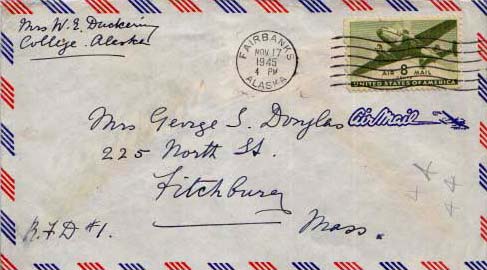 Mrs W. E. Duckering
College. Alaska
FAIRBANKS
NOV 17
1945
4 PM
ALASKA
AIR 8 MAIL
UNITED STATES OF AMERICA
Air Mail
Mrs George S. Douglas
225 North St.
Fitchburg
Mass.
R.F.D #1.
44
44